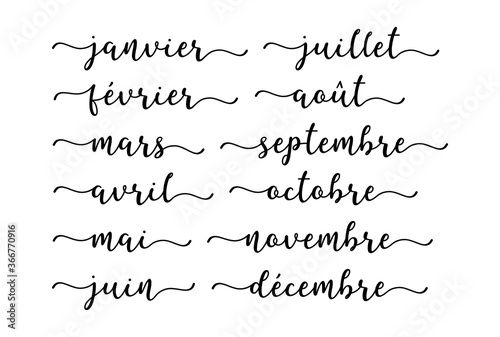 janvier juillet
février août
mars septembre
avril octobre
mai novembre
juin décembre
Adobe Stock | #366770916